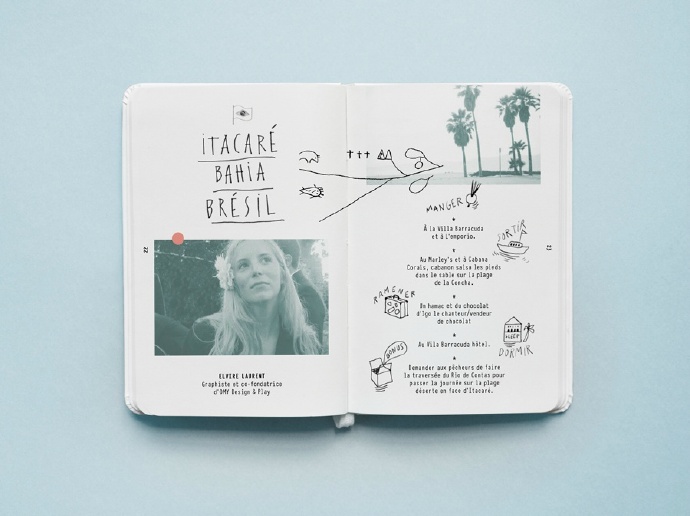 ITACARÉ
BAHIA
BRÉSIL
22
ELVIRE LAURENT
Graphiste et co-fondatrice
d'OMY Design & Play
MANGER
À la Villa Barracuda
et à L'emporio.
SORTIR
Au Marley's et à Cabana
Corais, cabanon salsa les pieds
dans le sable sur la plage
de la Concha.
RAMENER
Un hamac et du chocolat
d'Igo le chanteur/vendeur
de chocolat
DORMIR
Au Vila Barracuda hôtel.
BONUS
Demander aux pêcheurs de faire
la traversée du Rio de Contas pour
passer la journée sur la plage
déserte en face d'Itacaré.